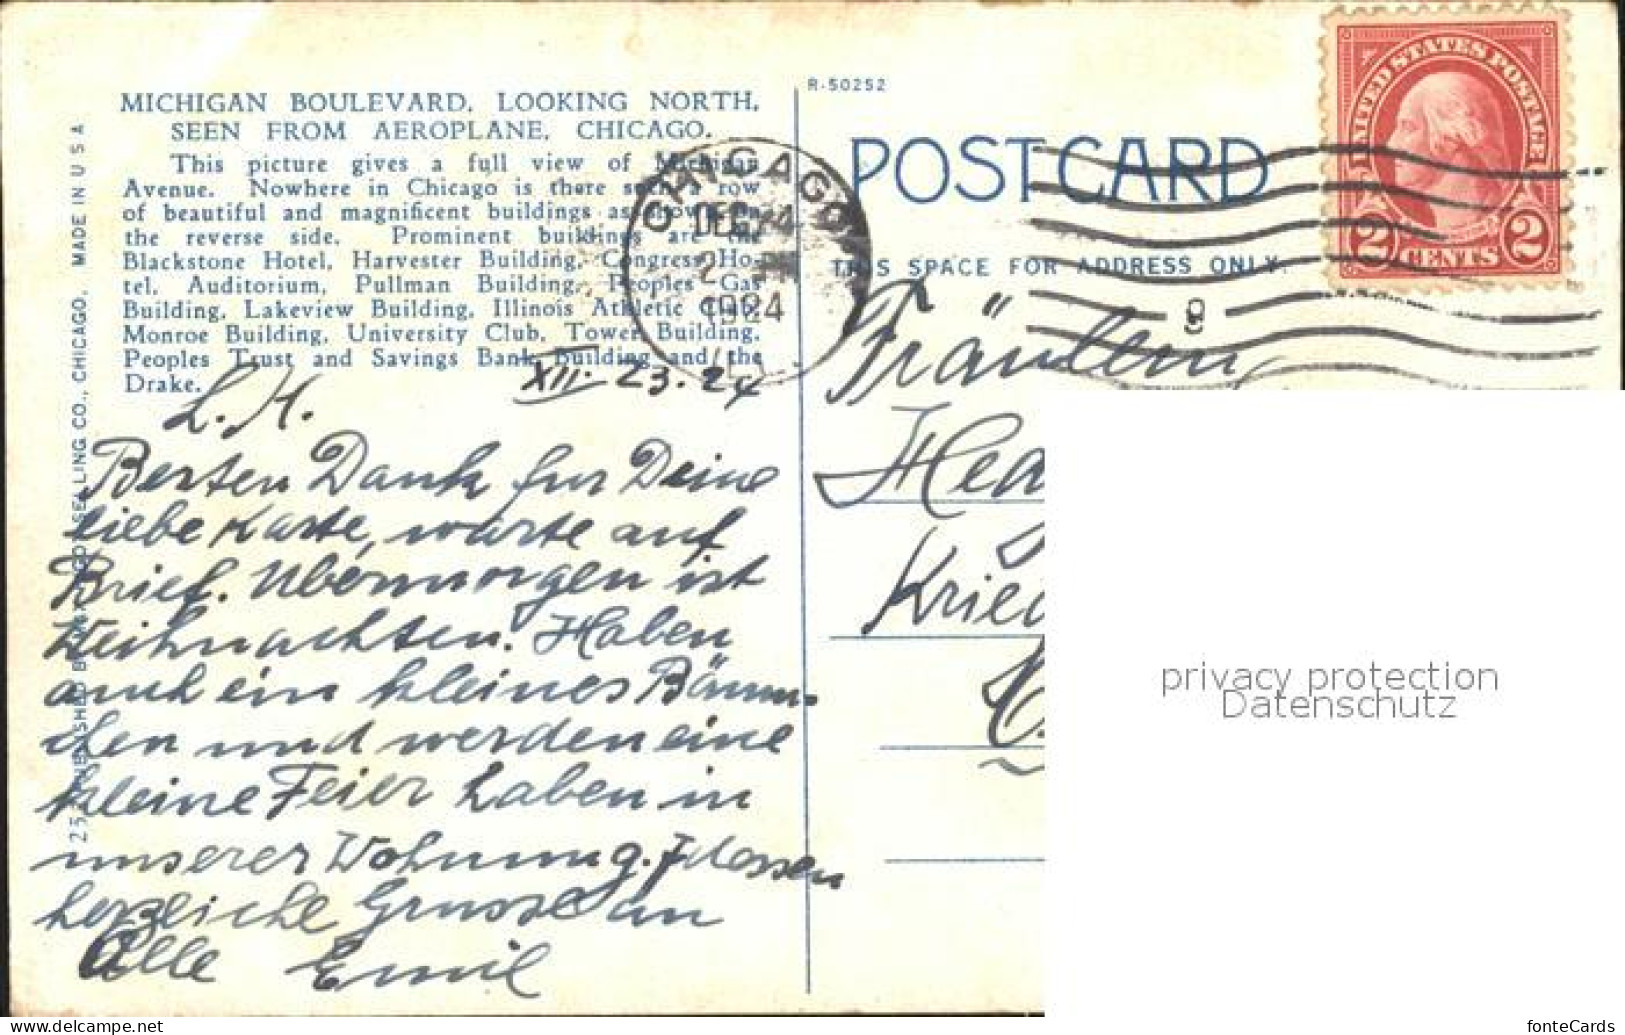 R-50252
MICHIGAN BOULEVARD, LOOKING NORTH,
SEEN FROM AEROPLANE, CHICAGO.
This picture gives a full view of Michigan
Avenue. Nowhere in Chicago is there such a row
of beautiful and magnificent buildings as shown on
the reverse side. Prominent buildings are the
Blackstone Hotel, Harvester Building, Congress Ho-
tel, Auditorium, Pullman Building, Peoples Gas
Building, Lakeview Building, Illinois Athletic Club,
Monroe Building, University Club, Tower Building,
Peoples Trust and Savings Bank Building and the
Drake.
XII. 23. 24
L. H.
Besten Dank fur Deine
liebe Karte, warte auf
Brief. Ubermorgen ist
Weihnachten. Haben
auch ein kleines Bäum-
chen und werden eine
kleine Feier haben in
unserer Wohnung. Idessen
herzliche Grusse an
Alle Emil
CHICAGO, CHICAGO. MADE IN U S A
POSTCARD
THIS SPACE FOR ADDRESS ONLY.
CHICAGO
DEC 24
1924
ILL
9
UNITED STATES POSTAGE
2 CENTS 2
Fräulein
Hed
Krieg
privacy protection
Datenschutz
www.delcampe.net
fonteCards